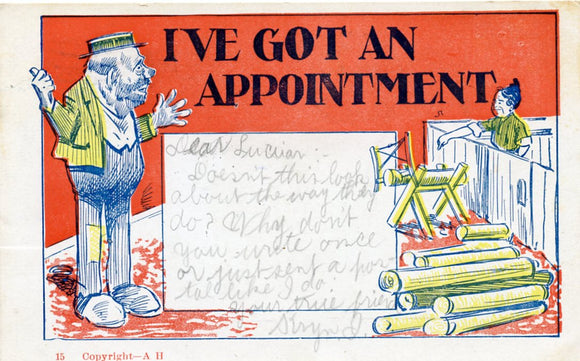 I'VE GOT AN
APPOINTMENT
Dear
Doesn't this look
about the way they
do? Why don't
you write once
or just sent a pos-
tal like I do.
Your true frien
15 Copyright—A H